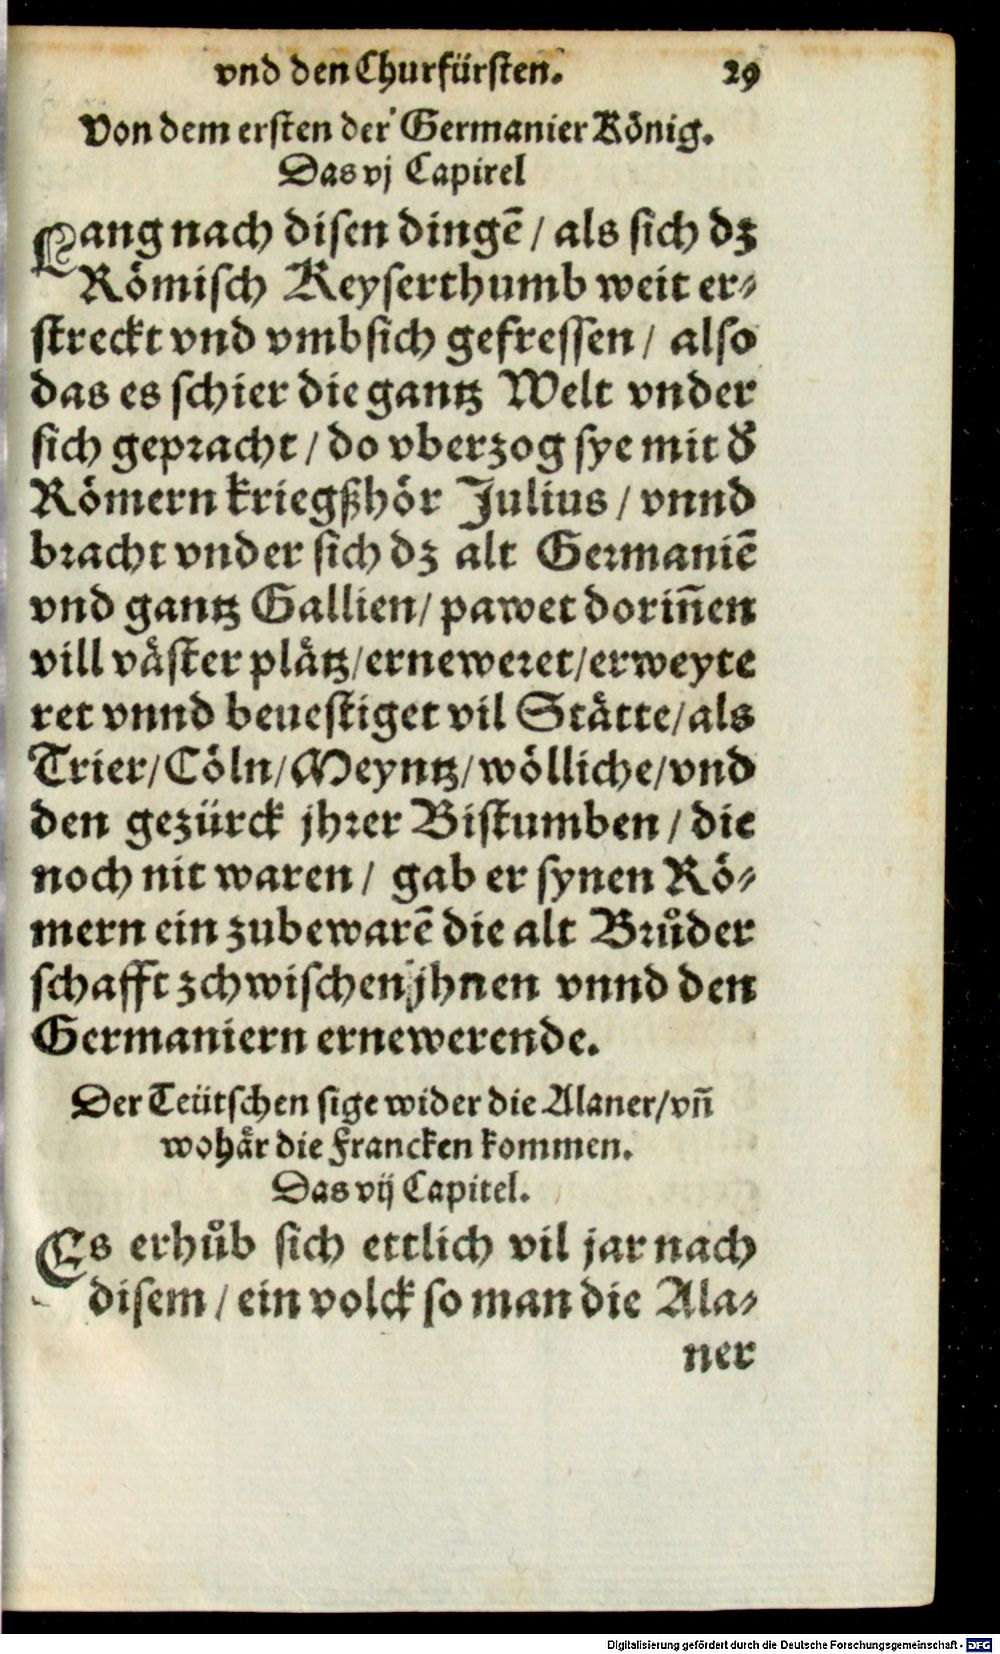 vnd den Churfürsten. 29
Von dem ersten der Germanier König.
Das vj Capitel
Lang nach disen dingē / als sich dz
Römisch Keyserthumb weit er⸗
streckt vnd vmbsich gefressen / also
das es schier die gantz Welt vnder
sich gepracht / do vberzog sye mit d̕
Römern kriegßhör Julius / vnnd
bracht vnder sich dz alt Germaniē
vnd gantz Gallien / pawet dorin̄en
vill vaͤster plaͤtz / erneweret / erweyte
ret vnnd beuestiget vil Staͤtte / als
Trier / Cöln / Meyntz / wölliche / vnd
den gezürck jhrer Bistumben / die
noch nit waren / gab er synen Rö⸗
mern ein zubewarē die alt Bruͤder
schafft zchwischen jhnen vnnd den
Germaniern ernewerende.
Der Teütschen sige wider die Alaner / vn̄
wohaͤr die Francken kommen.
Das vij Capitel.
Es erhuͦb sich ettlich vil jar nach
disem / ein volck so man die Ala⸗
ner
Digitalisierung gefördert durch die Deutsche Forschungsgemeinschaft - DFG